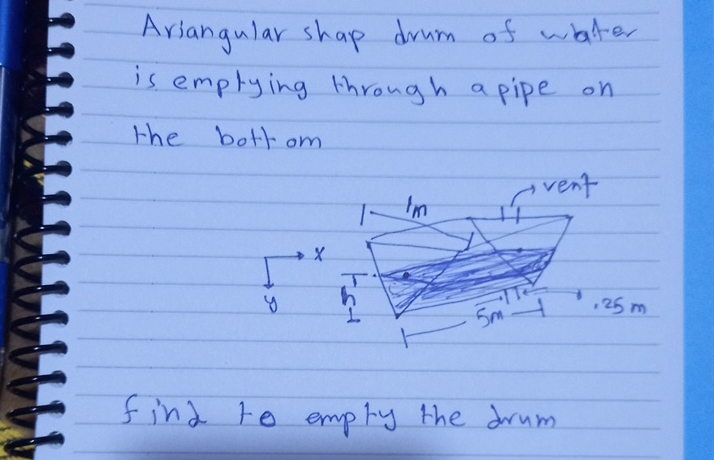 Ariangular shap drum of water
is emptying through a pipe on
the bottom
vent
1m
x
y
h
5m
.25 m
find to empty the drum